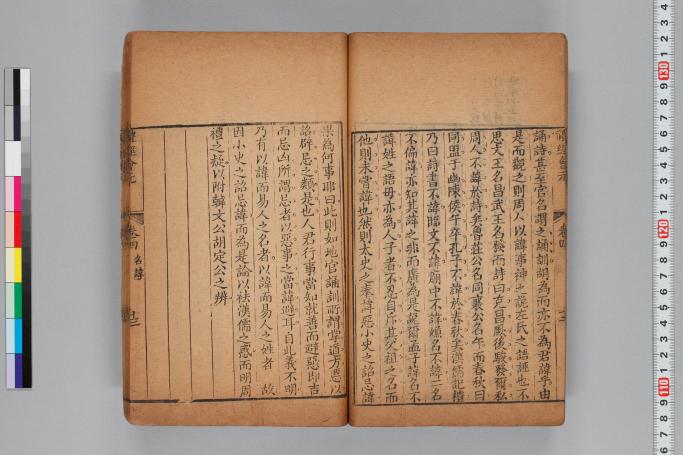 誦詩甚至官名謂之誦訓胡為而亦不為君諱乎由
是而觀之則周人以諱事神之說左氏之語誣也不
思文王名昌武王名發而詩曰克昌厥後駿發爾私
周人不諱於詩矣魯莊公名同襄公名午而春秋曰
同盟于幽陳侯午卒孔子不諱於春秋矣漢儒記禮
乃曰詩書不諱臨文不諱廟中不諱嫌名不諱二名
不偏諱亦知其諱之非而廣為是說爾孟子諱名不
諱姓之語毋亦為人子者不忍自斥其父祖之名而
他則未嘗諱也然則太史之奉諱惡小史之詔忌諱
果為何事耶曰此則如地官誦訓所謂掌道方慝以
詔辟忌之類是也人君行事當知就善而避惡即吉
而忌凶所謂忌者以惡事之當諱避耳自此義不明
乃有以諱而易人之名者以諱而易人之姓者 故
因小史之詔忌諱而為是論以袪漢儒之惑而明周
禮之疑以附韓文公胡定公之辨
卷四 名諱
卷四